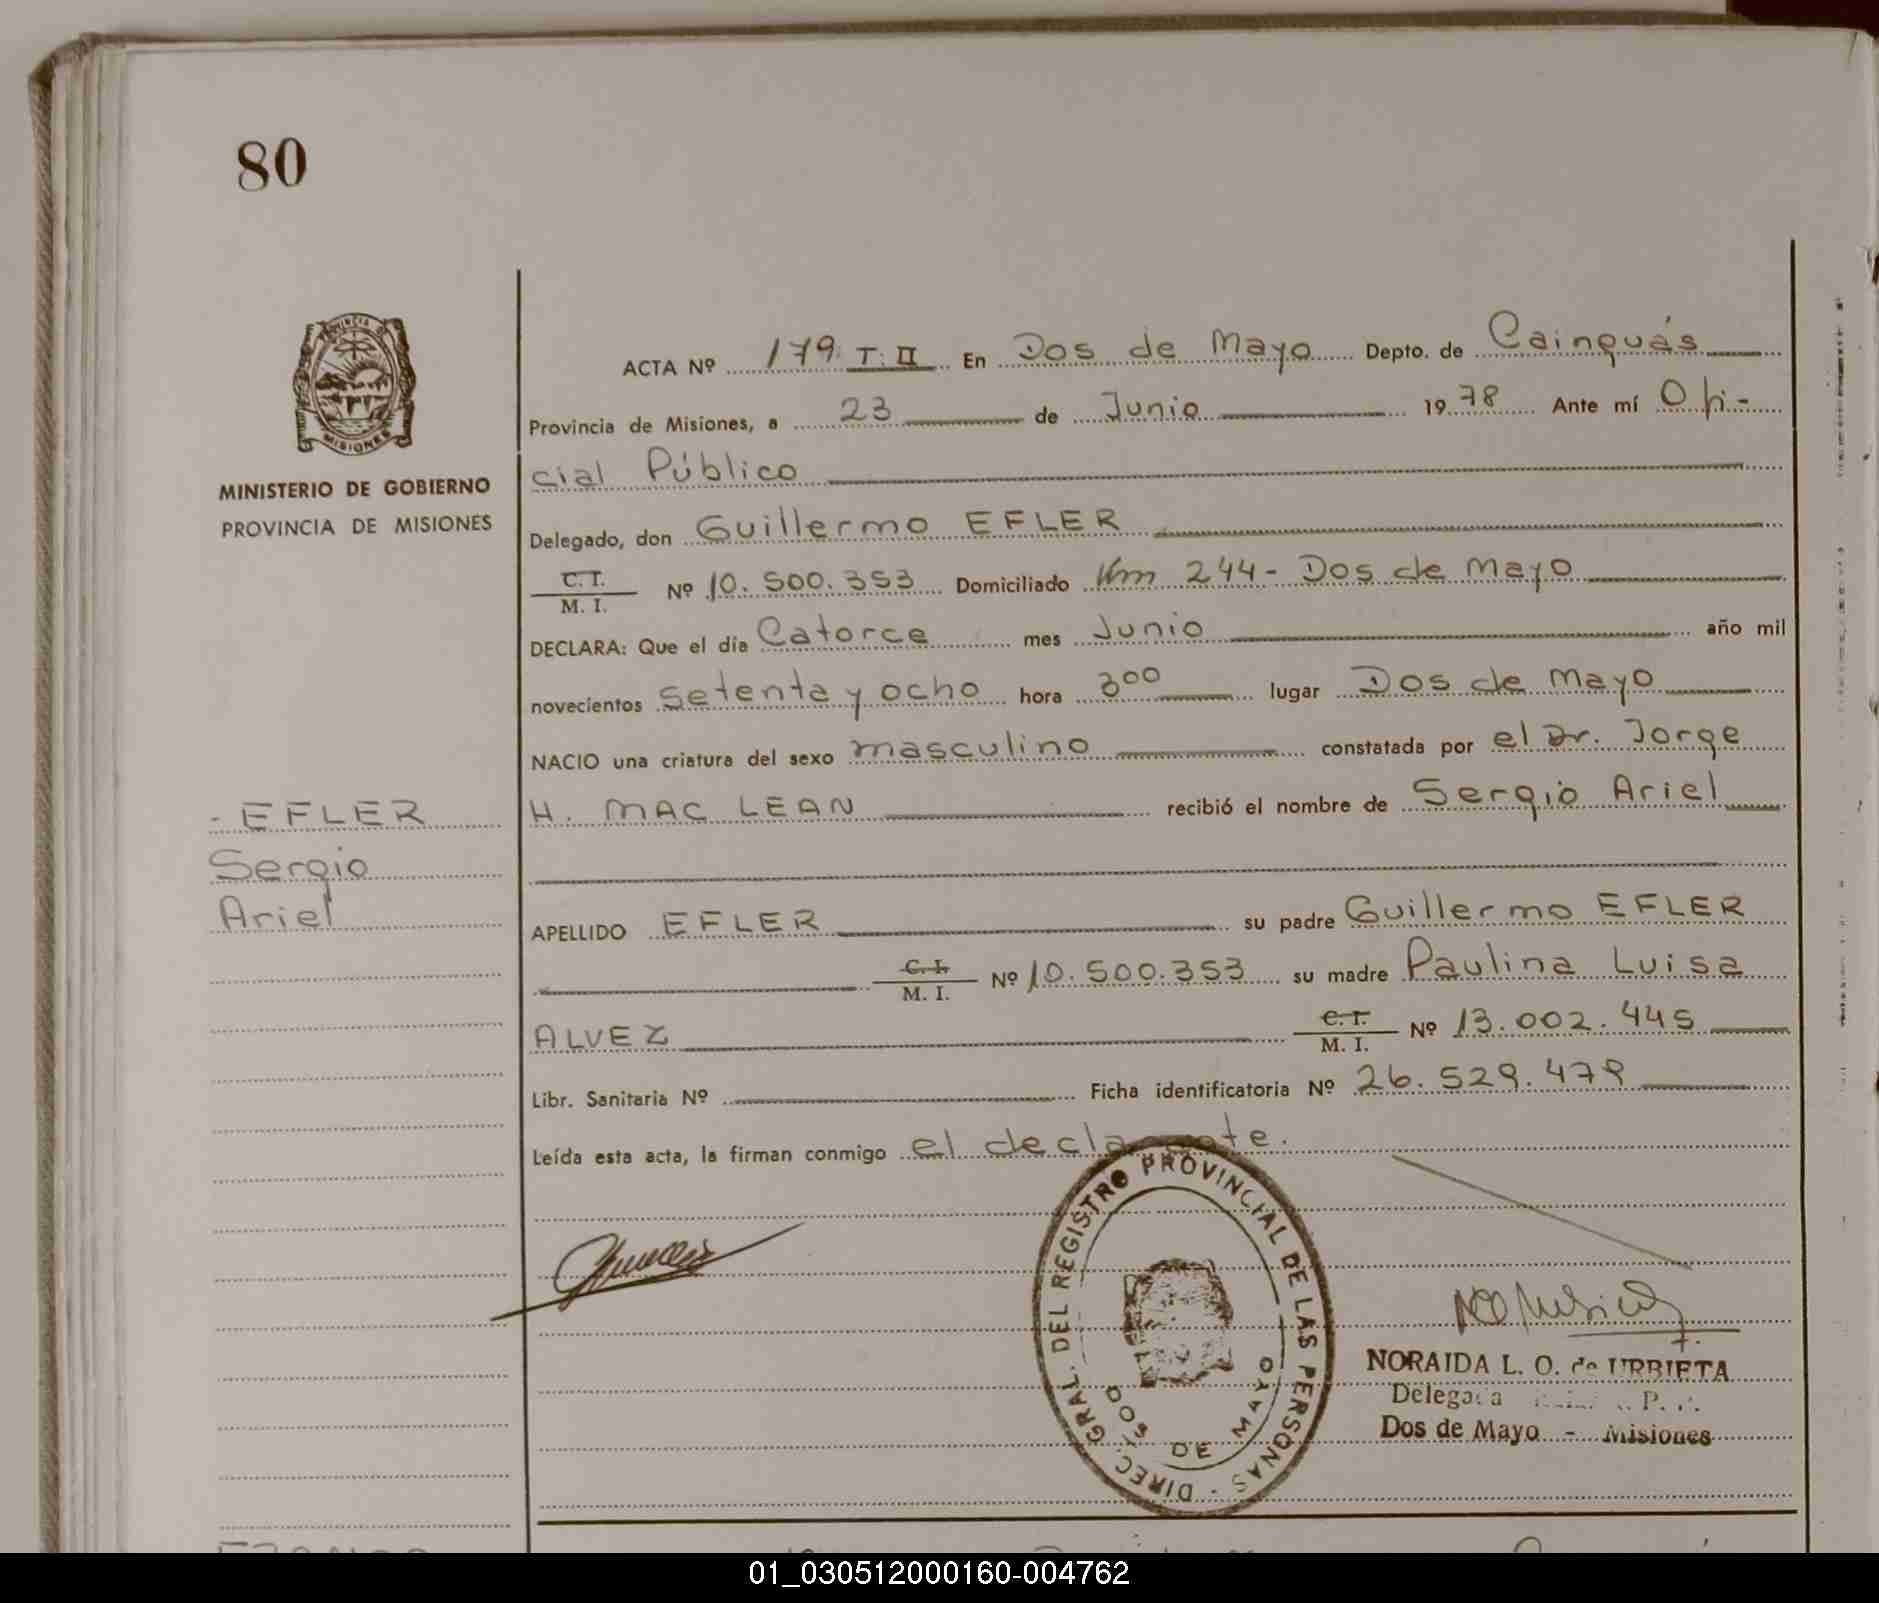 80
PROVINCIA DE
MISIONES
MINISTERIO DE GOBIERNO
PROVINCIA DE MISIONES
- EFLER
Sergio
Ariel
ACTA Nº 179 T: II En Dos de Mayo Depto. de Cainguás
Provincia de Misiones, a 23 de Junio 1978 Ante mí Ofi-
cial Público
Delegado, don Guillermo EFLER
C. I.
M. I. Nº 10.500.353 Domiciliado Km 244 - Dos de Mayo
DECLARA: Que el día Catorce mes Junio año mil
novecientos setenta y ocho hora 300 lugar Dos de Mayo
NACIO una criatura del sexo masculino constatada por el Dr. Jorge
H. MAC LEAN recibió el nombre de Sergio Ariel
APELLIDO EFLER su padre Guillermo EFLER
C. I.
M. I. Nº 10.500.353 su madre Paulina Luisa
ALVEZ C. I.
M. I. Nº 13.002.445
Libr. Sanitaria Nº Ficha identificatoria Nº 26.529.479
Leída esta acta, la firman conmigo el declarante.
DIREC. GRAL. DEL REGISTRO PROVINCIAL DE LAS PERSONAS -
DOS DE MAYO
NORAIDA L. O. de URBIETA
Delegada
Dos de Mayo - Misiones
01_030512000160-004762